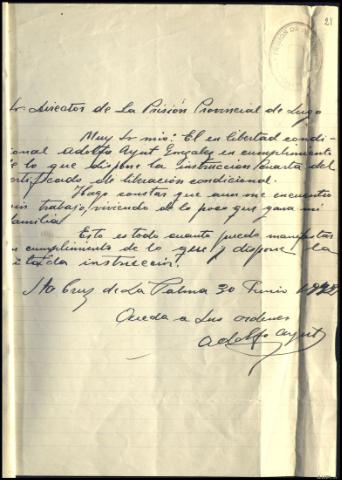 21
PRISION
Sr. Director de La Prisión Provincial de Lugo
Muy Sr mio: El en libertad condi-
ional Adolfo Ayut Gonzalez en cumplimiento
e lo que dispone la instruccion cuarta del
ertificado de liberación condicional.
Hago constar que aun me encuentro
sin trabajo, viviendo de lo poco que gana mi
familia
Esto es todo cuanto puedo manifestar
n cumplimiento de lo que dispone la
itada instrucción.
Sta Cruz de La Palma 30 Junio
Queda a sus ordenes
Adolfo Ayut